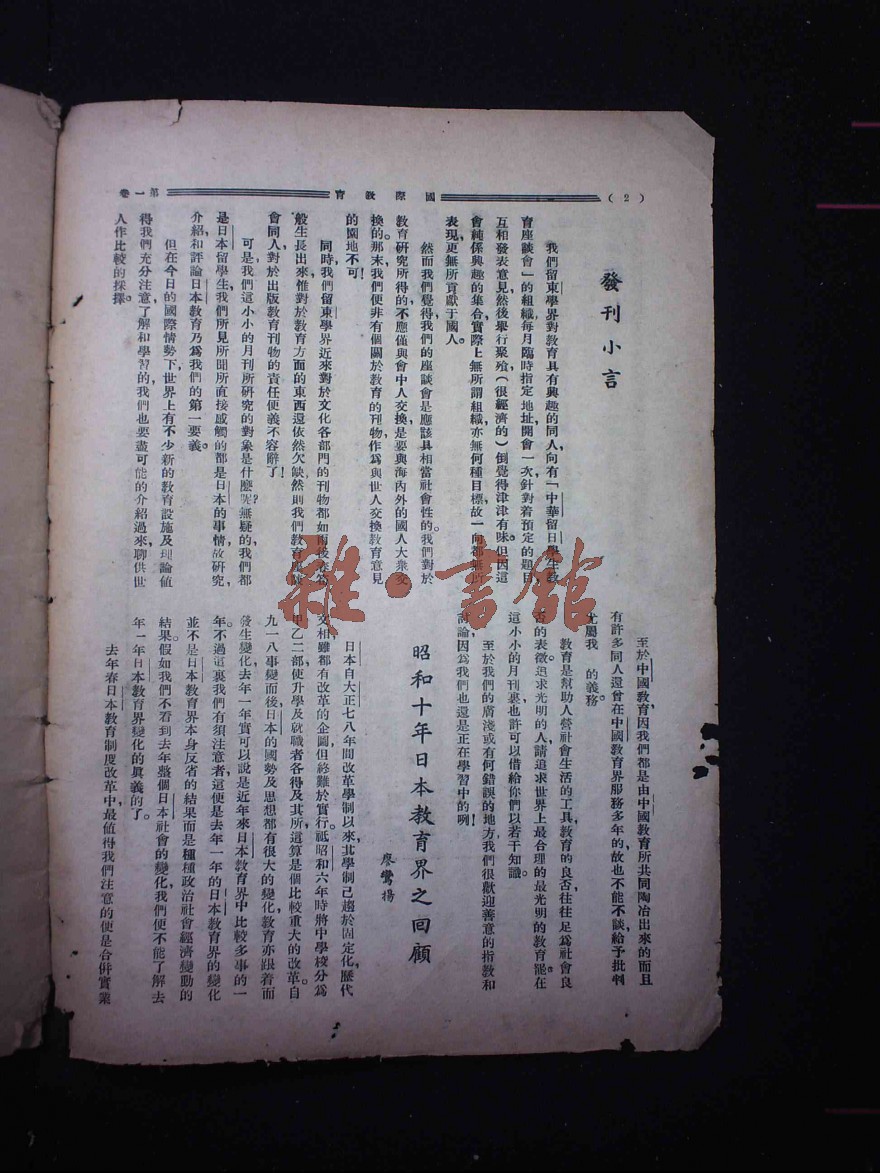 (2)
國際教育
第一卷
發刊小言
我們留東學界對教育具有興趣的同人，向有「中華留日學生教
育座談會」的組織，每月臨時指定地址，開會一次，針對着預定的題目，
互相發表意見，然後舉行聚飱（很經濟的）倒覺得津津有味。但因這
會純係興趣的集合，實際上無所謂組織，亦無何種目標，故一向都無所
表現，更無所貢獻于國人。
然而我們覺得，我們的座談會是應該具相當社會性的。我們對於
教育研究所得的，不應僅與會中人交換，是要與海內外的國人大衆交
換的。那末，我們便非有個關於教育的刊物，作爲與世人交換教育意見
的園地不可！
同時，我們留東學界近來對於文化各部門的刊物，都如雨後春筍
般生長出來，惟對於教育方面的東西還依然欠缺，然則我們教育座談
會同人，對於出版教育刊物的責任便義不容辭了！
可是，我們這小小的月刊所研究的對象是什麼呢？無疑的，我們都
是日本留學生，我們所見所聞所直接感觸的都是日本的事情，故研究
介紹和評論日本教育乃爲我們的第一要義。
但在今日的國際情勢下，世界上有不少新的教育設施及理論值
得我們充分注意了解和學習的，我們也要盡可能的介紹過來，聊供世
人作比較的採擇。
至於中國教育，因我們都是由中國教育所共同陶冶出來的，而且
有許多同人還曾在中國教育界服務多年的，故也不能不談，給予批判
尤屬我　的義務。
教育是幫助人營社會生活的工具，教育的良否往往足爲社會良
否的表徵，追求光明的人，請追求世界上最合理的最光明的教育罷。在
這小小的月刊裏也許可以借給你們以若干知識。
至於我們的膚淺或有何錯誤的地方，我們很歡迎善意的指教和
討論，因爲我們也還是正在學習中的咧！
昭和十年日本教育界之回顧
廖鸞揚
日本自大正七八年間改革學制以來，其學制已趨於固定化，歷代
文相雖都有改革的企圖，但終難於實行。祇昭和六年時將中學校分爲
甲乙二部，使升學及就職者各得及其所，這算是個比較重大的改革。自
九一八事變而後，日本的國勢及思想都有很大的變化，教育亦跟着而
發生變化，去年一年實可以說是近年來日本教育界中比較多事的一
年。不過這裏我們有須注意者，這便是去年一年的日本教育界的變化，
並不是日本教育界本身反省的結果，而是種種政治社會經濟變動的
結果。假如我們不看到去年整個日本社會的變化，我們便不能了解去
年一年日本教育界變化的眞義的了。
去年春日本教育制度改革中，最值得我們注意的便是合併實業
雜·書館